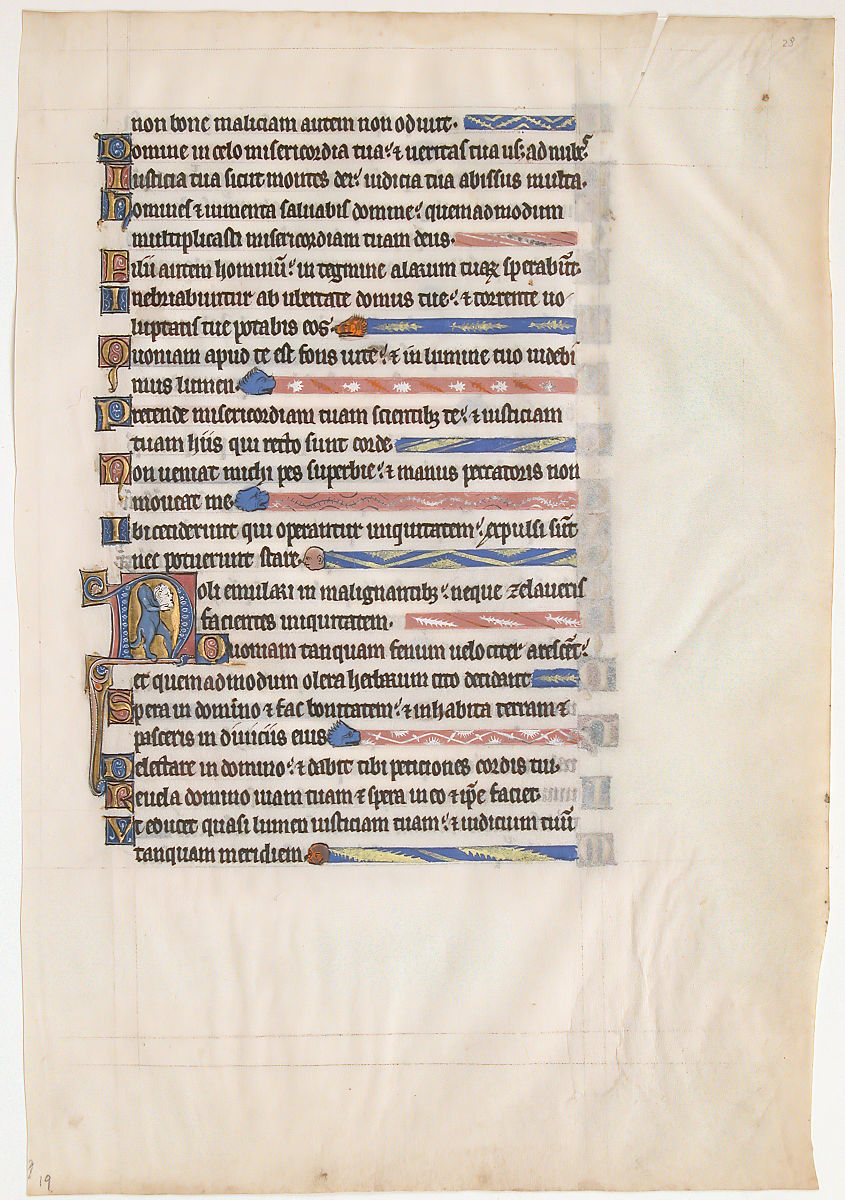 28
non bone maliciam autem non odiuit.
Domine in celo misericordia tua: ⁊ ueritas tua us; ad nubeꝫ
Iusticia tua sicut montes dei: iudicia tua abissus multa.
homines ⁊ iumenta saluabis domine: quemadmodum
multiplicasti misericordiam tuam deus.
Filii autem hominū: in tegmine alarum tuaꝝ sperabūt.
Inebriabuntur ab ubertate domus tue: ⁊ torrente uo
luptatis tue potabis eos.
Quoniam apud te est fons uite: ⁊ in lumine tuo uidebi
mus lumen.
Pretende misericordiam tuam scientibꝫ te: ⁊ iusticiam
tuam hiis qui recto sunt corde.
Non ueniat michi pes superbie: ⁊ manus peccatoris non
moueat me.
Ibi ceciderunt qui operantur iniquitatem: expulsi sūt
nec potuerunt stare.
Noli emulari in malignantibꝫ: neque zelaueris
facientes iniquitatem.
Quoniam tanquam fenum uelociter arescēt:
et quemadmodum olera herbarum cito decidant
Spera in domino ⁊ fac bonitatem: ⁊ inhabita terram ⁊
pasceris in diuiciis eius
Delectare in domino: ⁊ dabit tibi peticiones cordis tui.
Reuela domino uiam tuam ⁊ spera in eo ⁊ ip̄e faciet
Vt educet quasi lumen iusticiam tuam: ⁊ iudicium tuū
tanquam meridiem
19